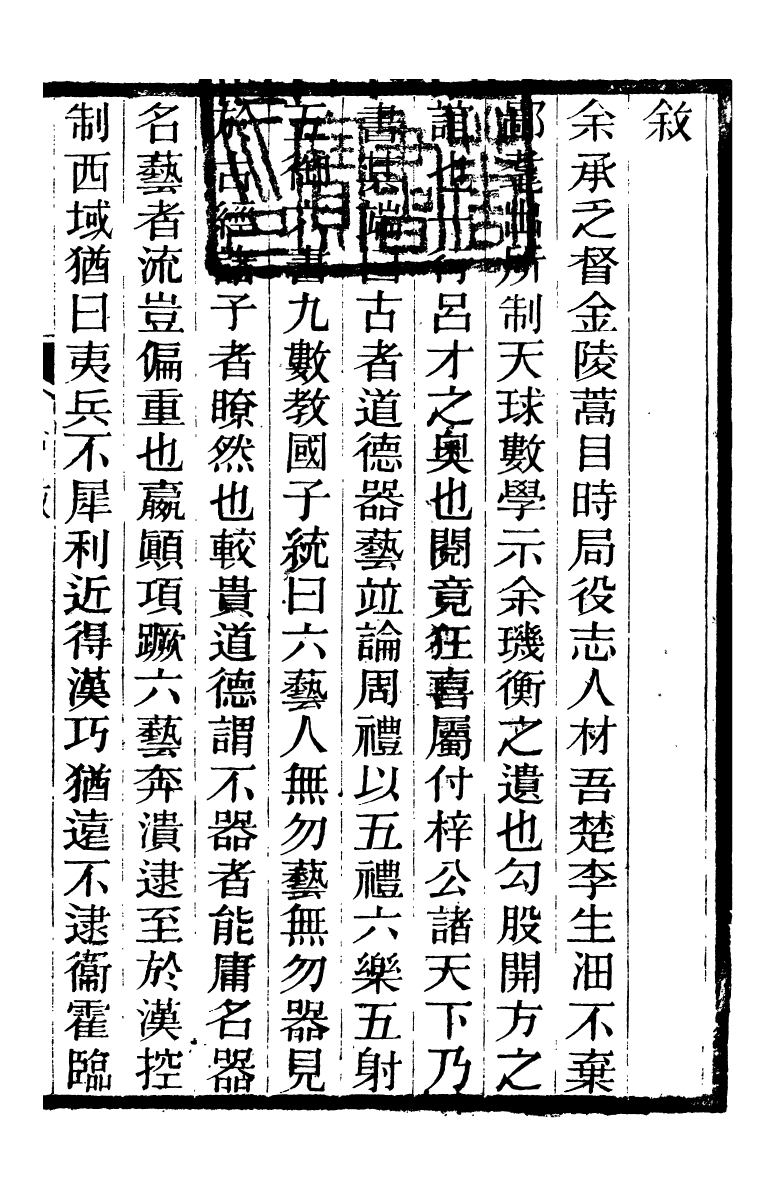 敘
余承乏督金陵蒿目時局役志人材吾楚李生沺不棄
鄙其所制天球數學示余璣衡之遺也勾股開方之
誼也行呂才之奧也閱竟狂喜屬付梓公諸天下乃
書其端曰古者道德器藝竝論周禮以五禮六樂五射
五御六書九數教國子統曰六藝人無勿藝無勿器見
於古經諸子者瞭然也較貴道德謂不器者能庸名器
名藝者流豈偏重也嬴顚項蹶六藝奔潰逮至於漢控
制西域猶曰夷兵不犀利近得漢巧猶遠不逮衞霍臨